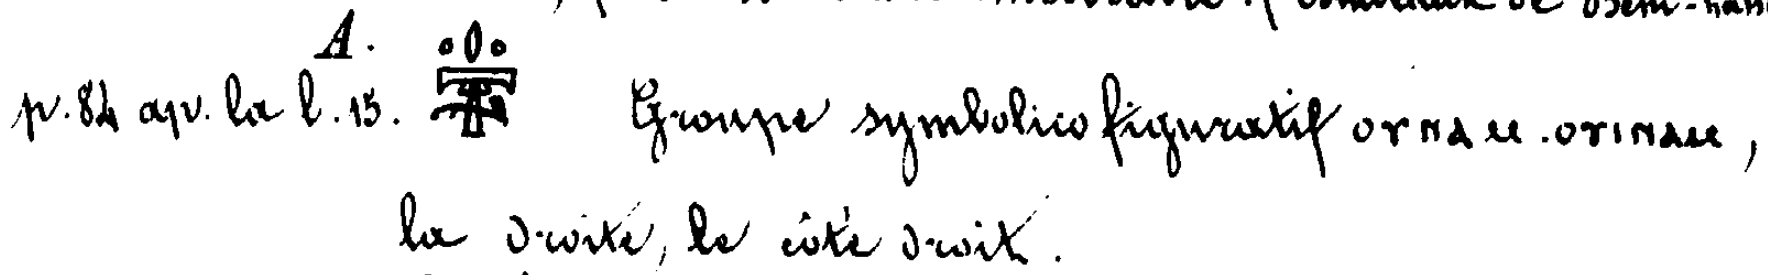 A.
p. 84 ap. la l. 15. Groupe symbolico figuratif ⲟⲩⲛⲁⲙ . ⲟⲩⲓⲛⲁⲙ,
la droite, le côté droit.